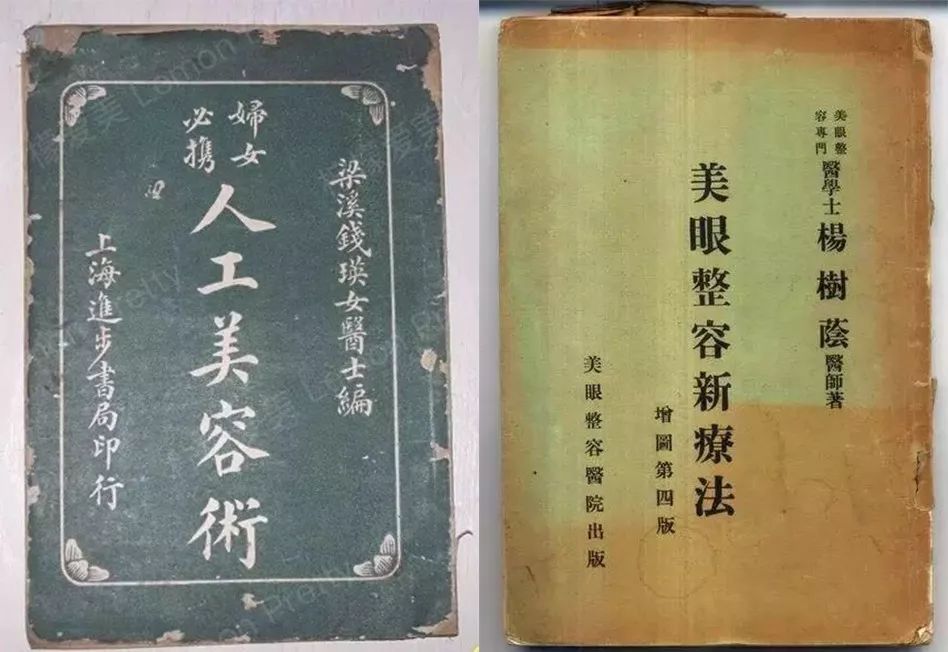 梁溪錢瑛女醫士編
婦女
必携
人工美容術
上海進步書局印行
美眼整
容專門
醫學士楊樹蔭醫師著
美眼整容新療法
增圖第四版
美眼整容醫院出版
Lemon Pretty